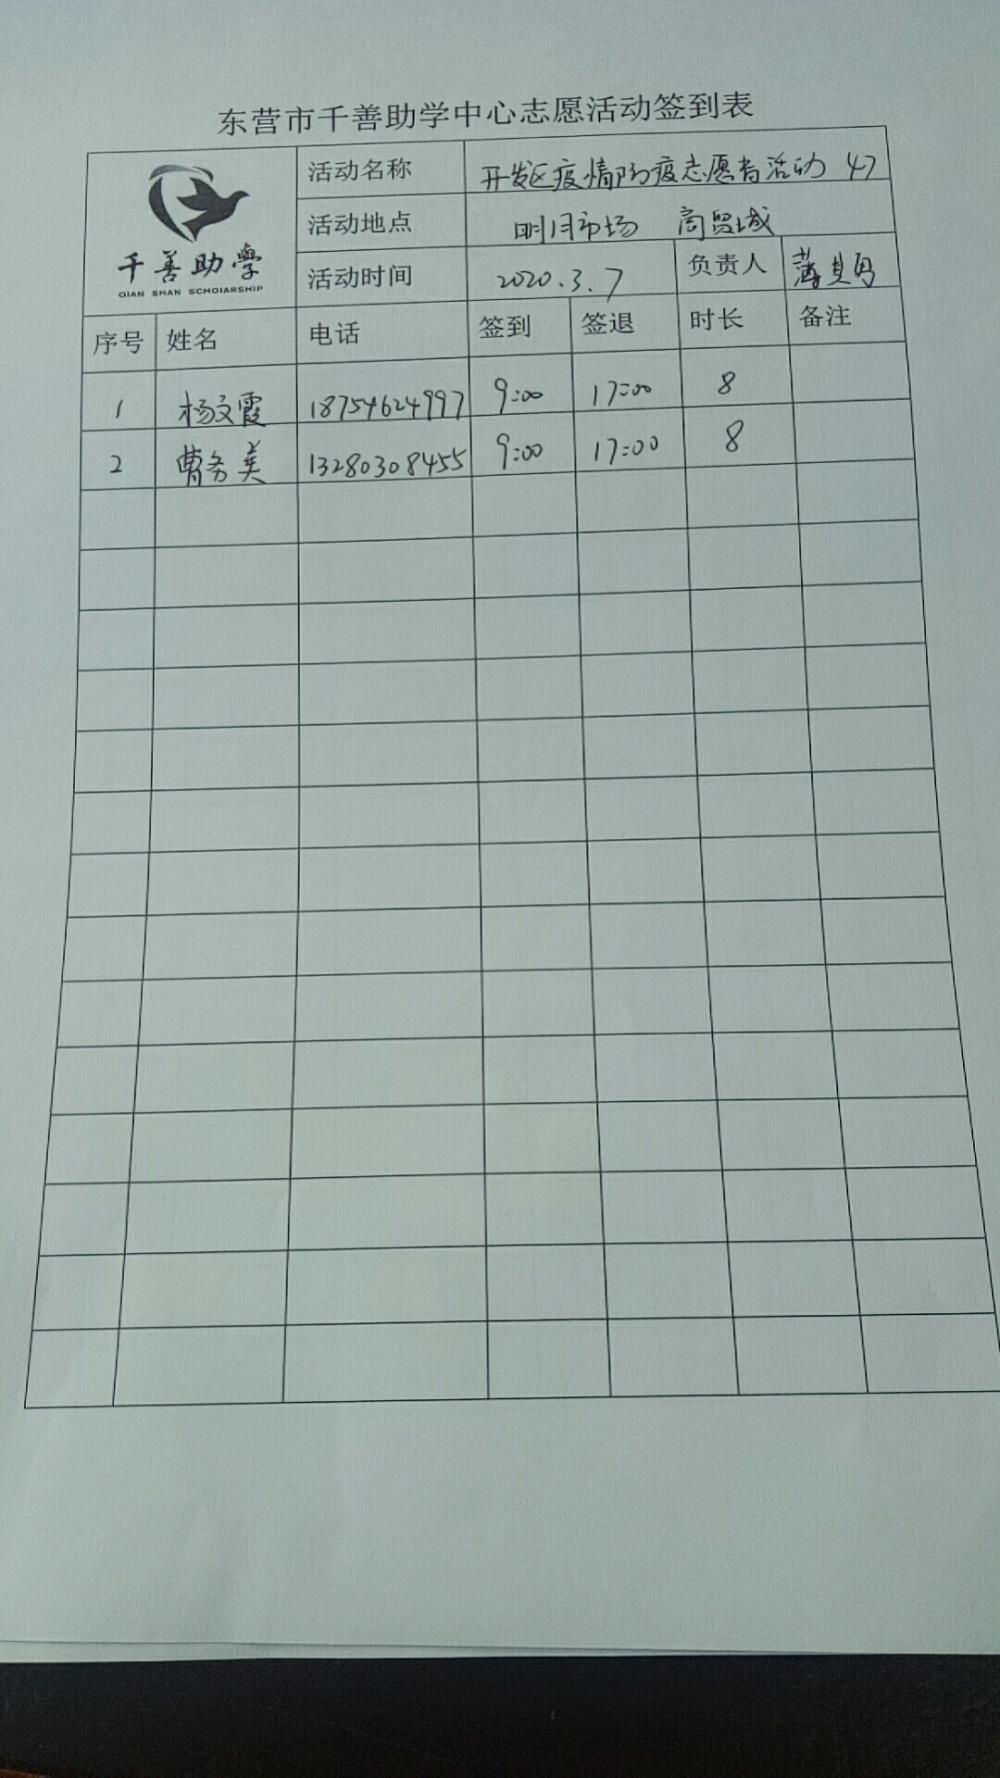 东营市千善助学中心志愿活动签到表
千善助學
QIAN SHAN SCHOIARSHIP
活动名称 开发区疫情防疫志愿者活动 47
活动地点 明月市场 商贸城
活动时间 2020.3.7 负责人
序号 姓名 电话 签到 签退 时长 备注
1 杨文霞 18754624997 9:00 17:00 8
2 曹务美 13280308455 9:00 17:00 8